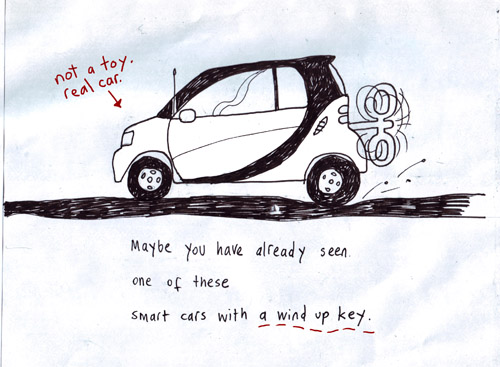 not a toy.
real car.
Maybe you have already seen.
one of these
smart cars with a wind up key.